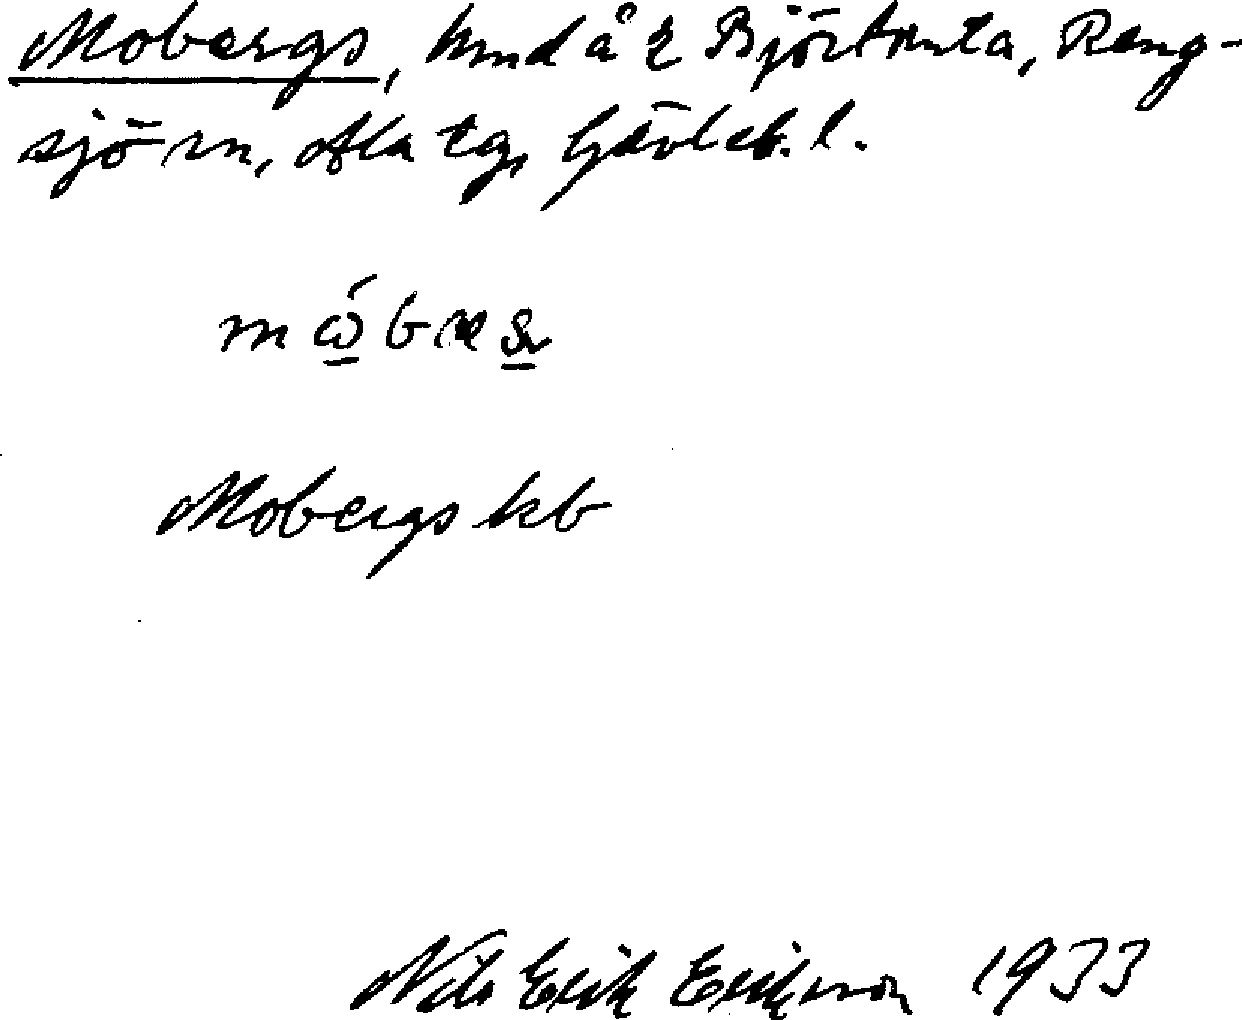 Mobergs, hmd å 2 Björtomta, Reng-
sjö sn, Ala tg, Gävleb. l.
Mobergs kb
Nils Erik Erikson 1933